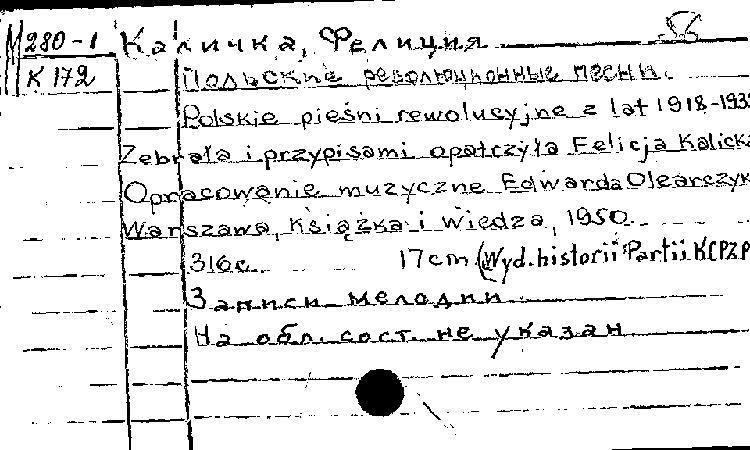 М280-1 Каличка, Фелиция 56
К 172 Польские революционные песни.
Polskie pieśni rewolucyjne z lat 1918-193
Zebrała i przypisami opatrzyła Felicja Kalicka
Opracowanie muzyczne Edwarda Olearczyk
Warszawa, Książka i Wiedza, 1950.
316с. 17cm (Wyd. historii Partii KCPZP
Записи мелодии
На обл. сост. не указан